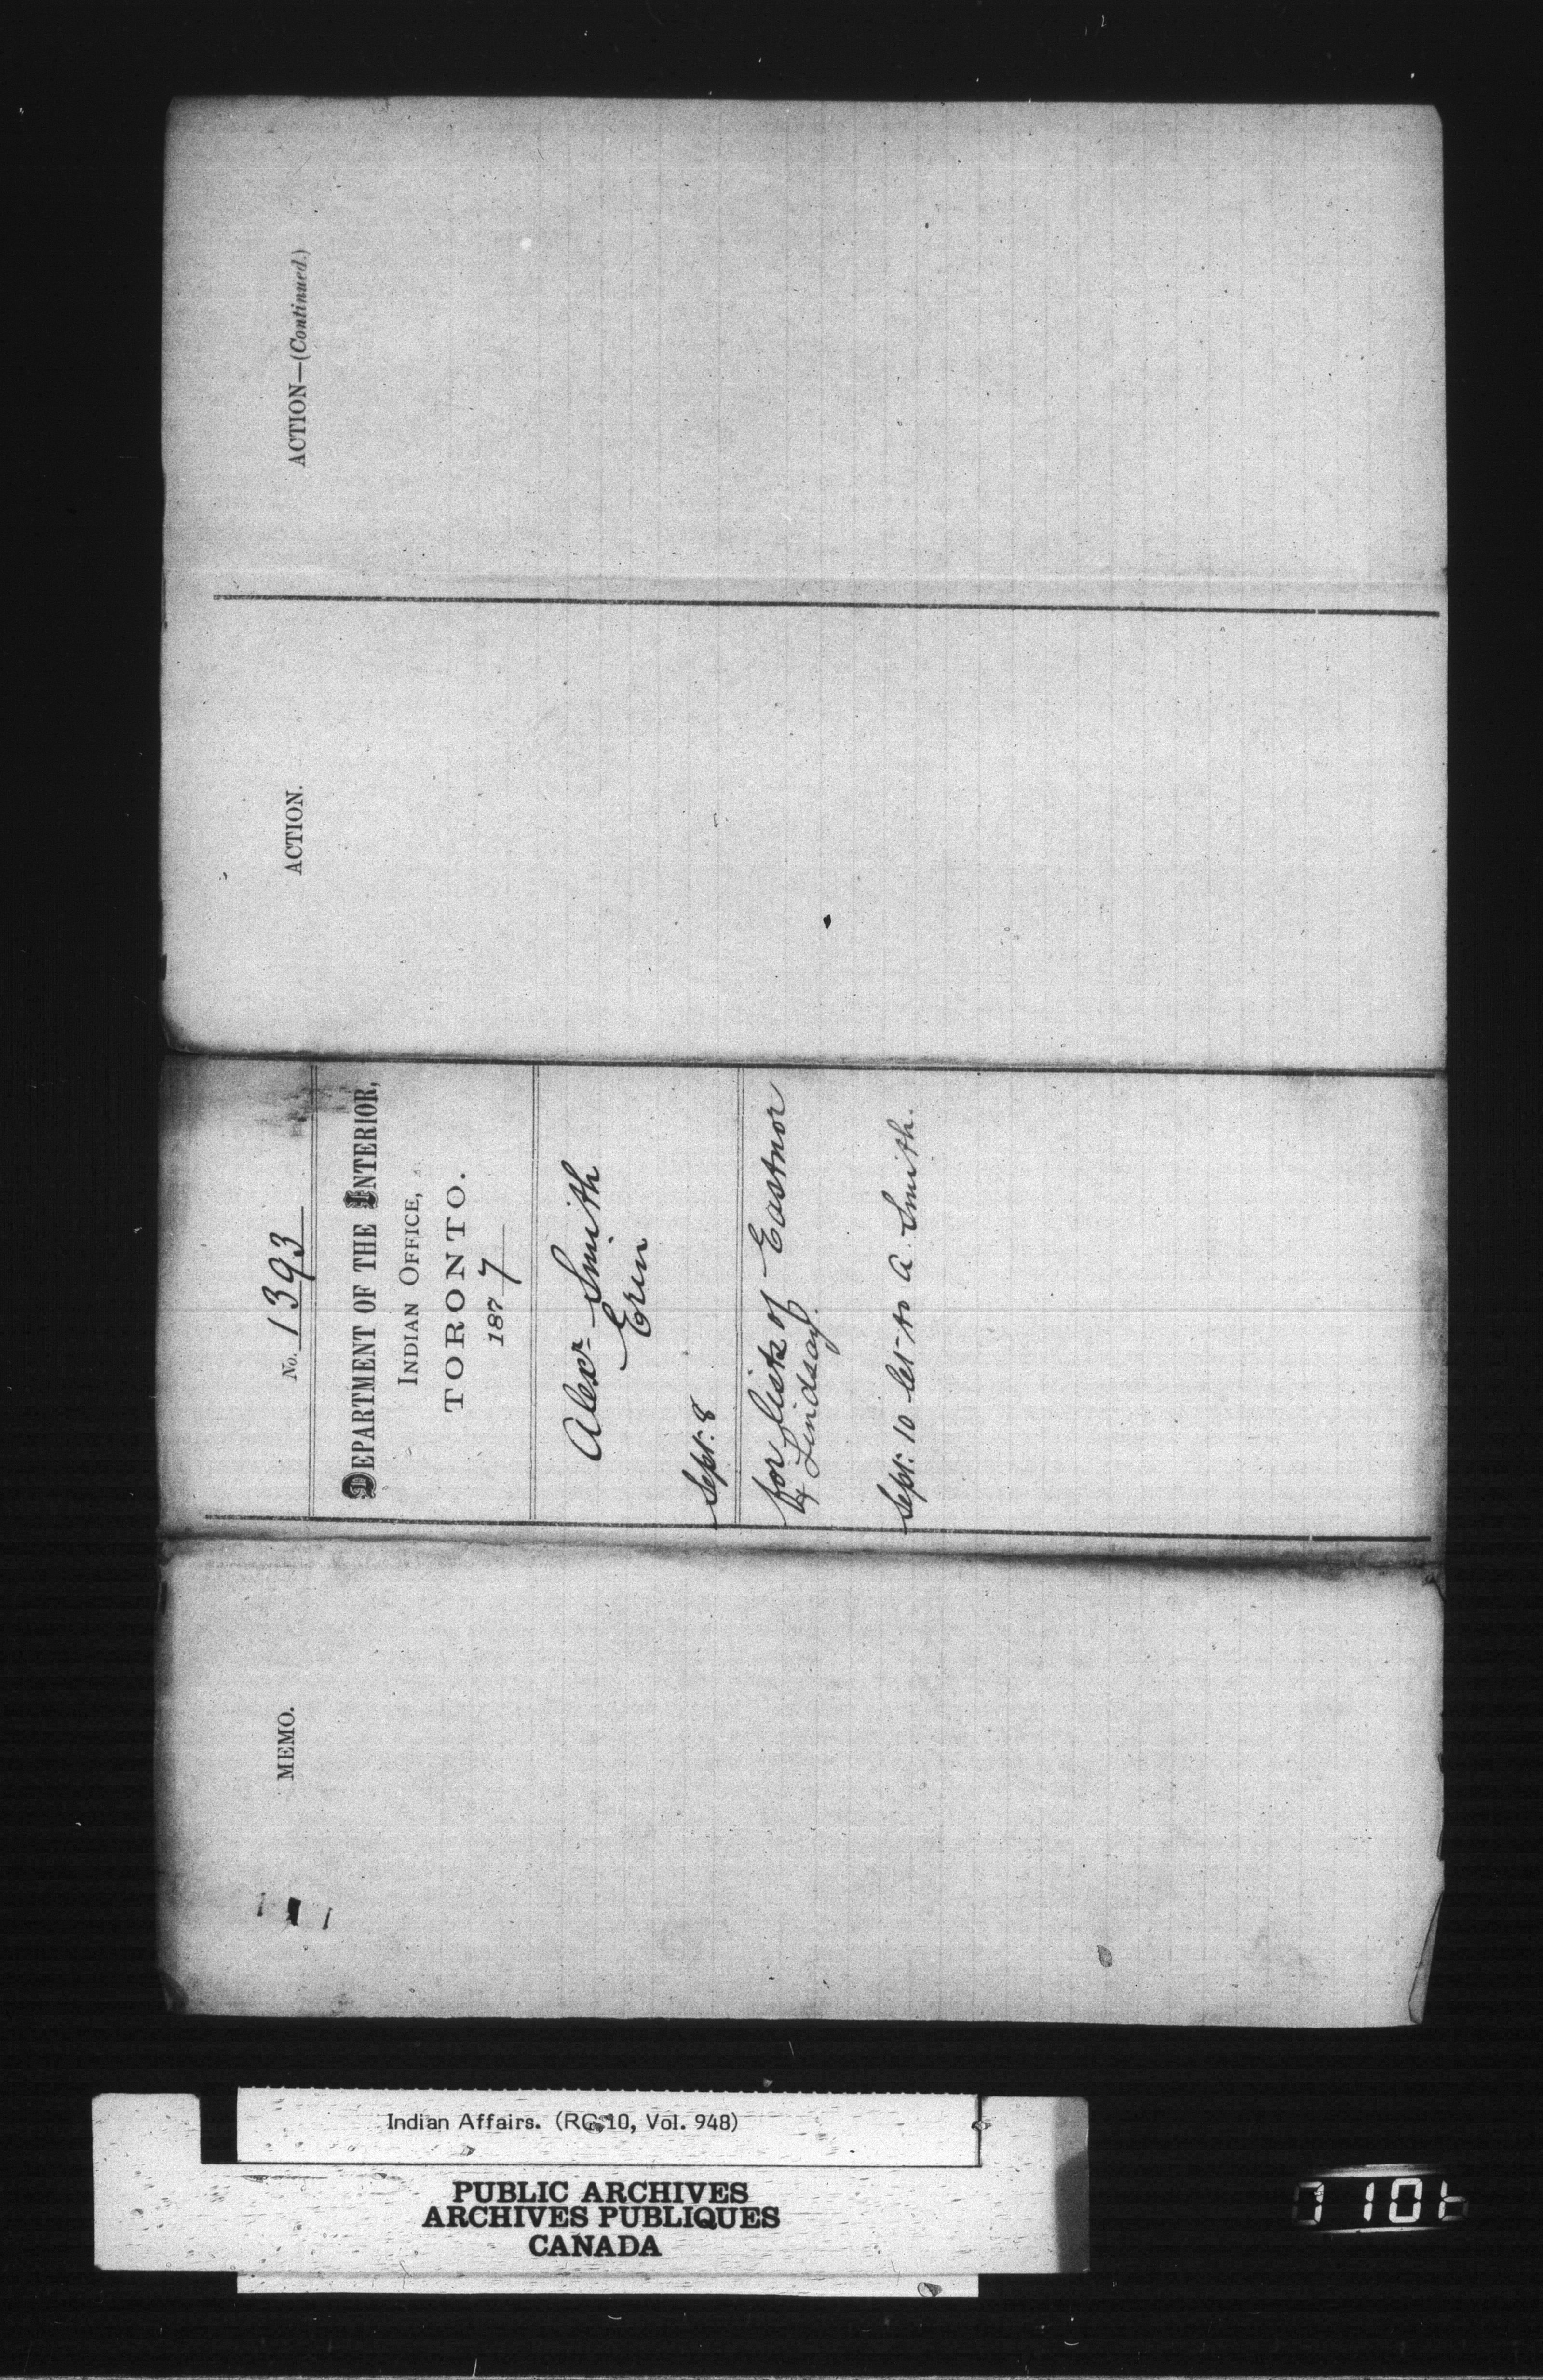 MEMO.
No. 1393
DEPARTMENT OF THE INTERIOR,
INDIAN OFFICE,
TORONTO.
1877
Alexr Smith
Erin
Sept. 8
for lists of Eastnor
& Lindsay.
Sept. 10 let to A. Smith.
ACTION.
ACTION—(Continued.)
Indian Affairs. (RG 10, Vol. 948)
PUBLIC ARCHIVES
ARCHIVES PUBLIQUES
CANADA